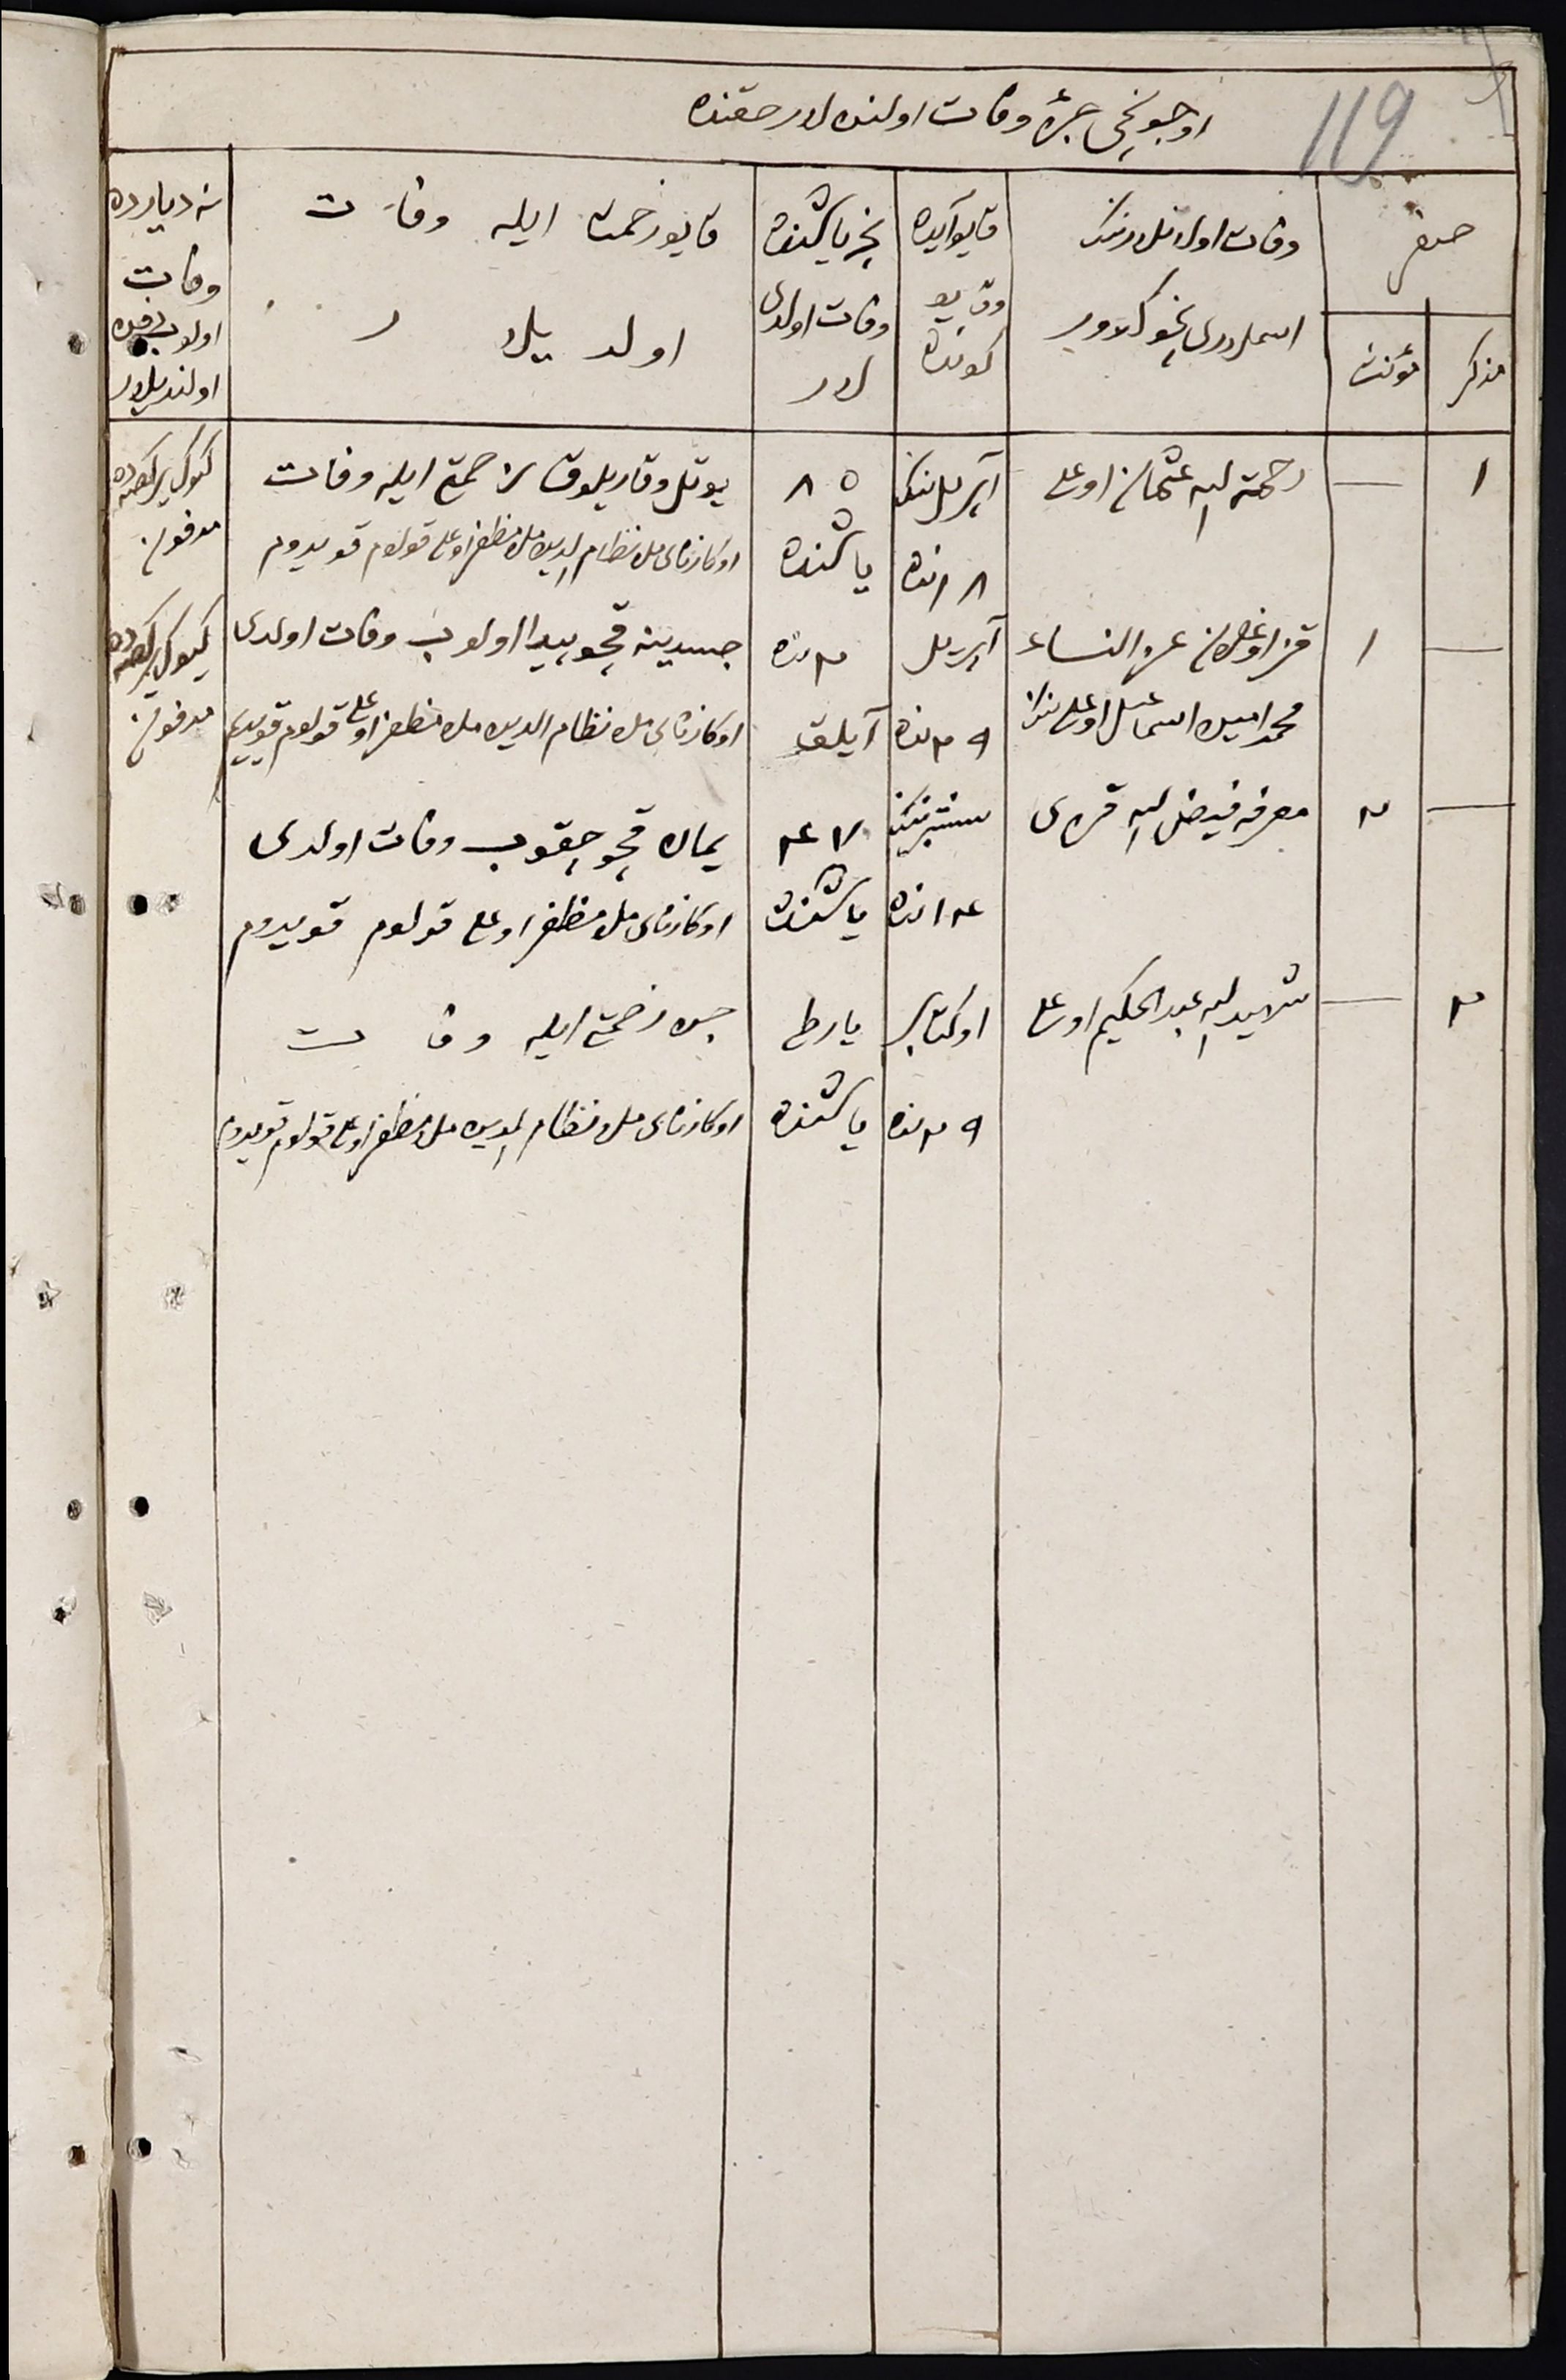 119
اوچونچی جزؤ وفات اولنەلار حقنده
صنف
مذکر
مؤنث
وفات اولانلارننک
اسملاری نچوکلاور
قایو آیده
وقایو
کونده
نچه یاشنده
وفات اولدی
لار
قایو زحمت ایله وفات
اولدیلار
نه دیارده
وفات
اولوب دفن
اولندیلار
۱
—
رحمة الله عثمان اوغلی
آپریل ننک
۱۸ نده
۵۸
یاشنده
یوتل وقاریلوق زحمتی ایله وفات
اوکازنای ملا نظام الدین ملا مظفر اوغلی قولوم قویدوم
مدفون
—
۱
قز اوغلان عز النساء
محمد امین اسماعیل اوغلی ننک
آپریل
۲۹ نده
۲ نده
آیلق
جسدینه قچو پیدا اولوب وفات اولدی
اوکازنای ملا نظام الدین ملا مظفر اوغلی قولوم قویدم
مدفون
—
۲
معرفه فیض الله قزی
سنتبرننک
۱۴ نده
۷۴
یاشنده
یمان قچو چقوب وفات اولدی
اوکازنای ملا مظفر اوغلی قولوم قویدوم
۲
—
شهید الله عبد الحکیم اوغلی
اوکتابر
۲۹ نده
یارطی
یاشنده
چن زحمتی ایله وفات
اوکازنای ملا نظام الدین ملا مظفر اوغلی قولوم قویدوم